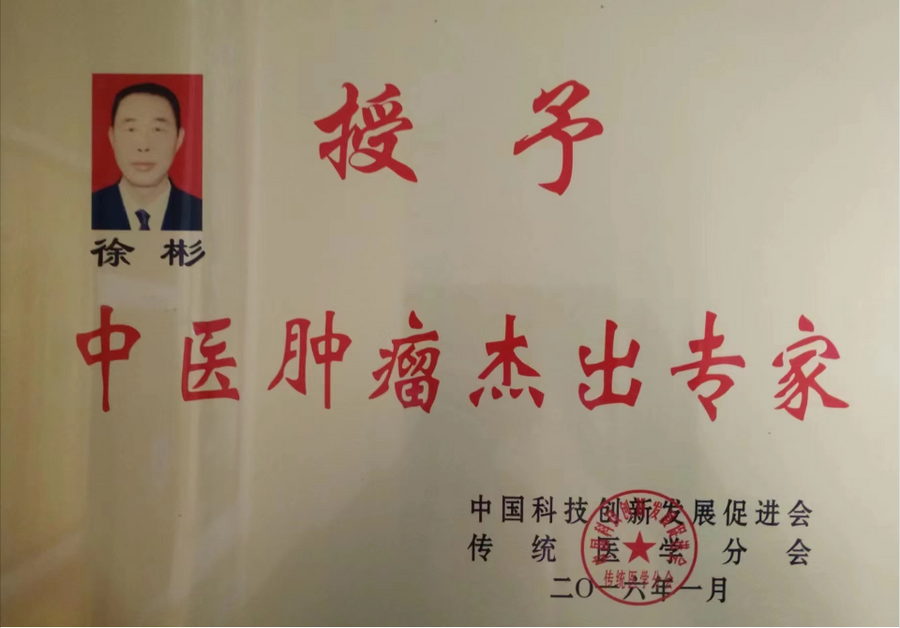 授予
徐彬
中医肿瘤杰出专家
中国科技创新发展促进会
传统医学分会
二〇一六年一月
传统医学分会